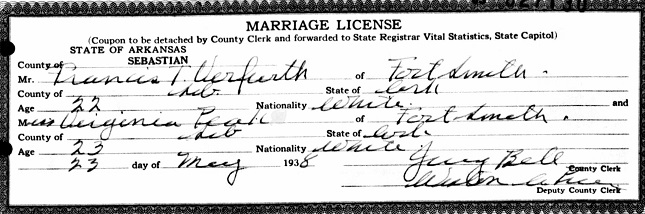 MARRIAGE LICENSE
(Coupon to be detached by County Clerk and forwarded to State Registrar Vital Statistics, State Capitol)
STATE OF ARKANSAS
County of SEBASTIAN
Mr. Francis T. of Fort Smith.
County of Seb State of Ark
Age 22 Nationality White and
Miss Virginia Peak of Fort Smith.
County of Seb State of Ark
Age 23 Nationality White
23 day of May 1938 Guy Bell County Clerk
Deputy County Clerk